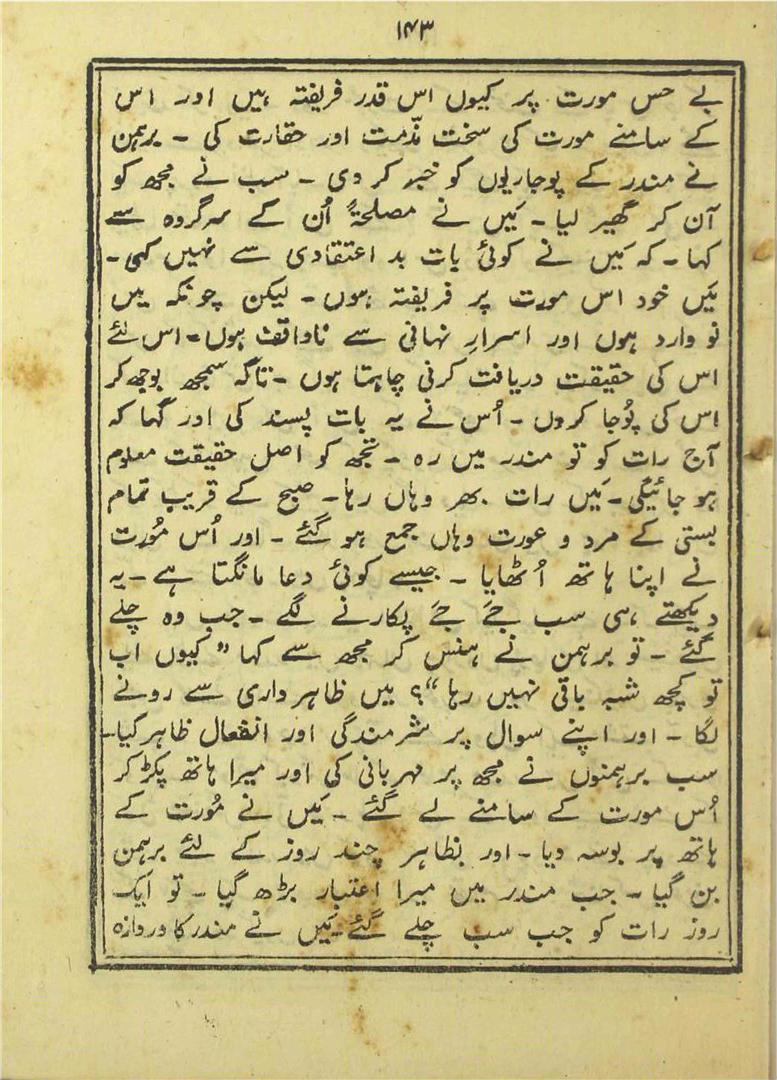 ۱۴۳
بے حس مورت پر کیوں اس قدر فریفتہ ہیں اور اس
کے سامنے مورت کی سخت مذّمت اور حقارت کی ۔ برہمن
نے مندر کے پوجاریوں کو خبر کر دی ۔ سب نے مجھ کو
آن کر گھیر لیا ۔ مَیں نے مصلحۃً اُن کے سرگروہ سے
کہا ۔ کہ مَیں نے کوئی بات بد اعتقادی سے نہیں کہی ۔
مَیں خود اس مورت پر فریفتہ ہوں ۔ لیکن چونکہ میں
نو وارد ہوں اور اسرارِ نہانی سے ناواقف ہوں ۔ اس لئے
اس کی حقیقت دریافت کرنی چاہتا ہوں ۔ تاکہ سمجھ بوجھ کر
اس کی پُوجا کروں ۔ اُس نے یہ بات پسند کی اور کہا کہ
آج رات کو تو مندر میں رہ ۔ تجھ کو اصل حقیقت معلوم
ہو جائیگی ۔ مَیں رات بھر وہاں رہا ۔ صبح کے قریب تمام
بستی کے مرد و عورت وہاں جمع ہو گئے ۔ اور اُس مُورت
نے اپنا ہاتھ اُٹھایا ۔ جیسے کوئی دعا مانگتا ہے ۔ یہ
دیکھتے ہی سب جَے جَے پکارنے لگے ۔ جب وہ چلے
گئے ۔ تو برہمن نے ہنس کر مجھ سے کہا ”کیوں اب
تو کچھ شبہ باقی نہیں رہا“؟ میں ظاہر داری سے رونے
لگا ۔ اور اپنے سوال پر شرمندگی اور انفعال ظاہر کیا ۔
سب برہمنوں نے مجھ پر مہربانی کی اور میرا ہاتھ پکڑ کر
اُس مورت کے سامنے لے گئے ۔ مَیں نے مُورت کے
ہاتھ پر بوسہ دیا ۔ اور بظاہر چند روز کے لئے برہمن
بن گیا ۔ جب مندر میں میرا اعتبار بڑھ گیا ۔ تو ایک
روز رات کو جب سب چلے گئے ۔ مَیں نے مندر کا دروازہ